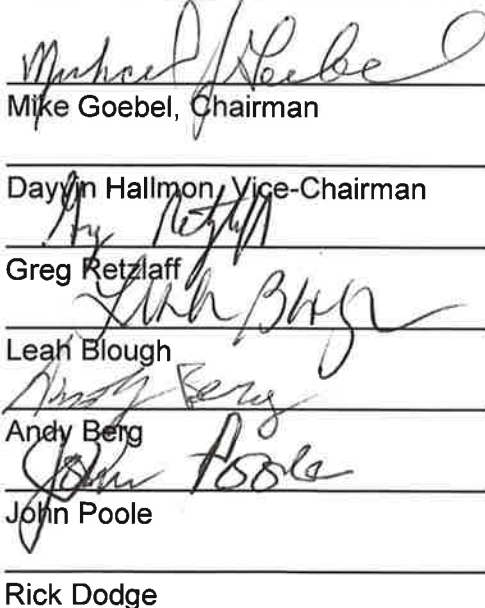 Michael J Goebel
Mike Goebel, Chairman
Dayvin Hallmon, Vice-Chairman
Greg Retzlaff
Greg Retzlaff
Leah Blough
Leah Blough
Andy Berg
Andy Berg
John Poole
John Poole
Rick Dodge